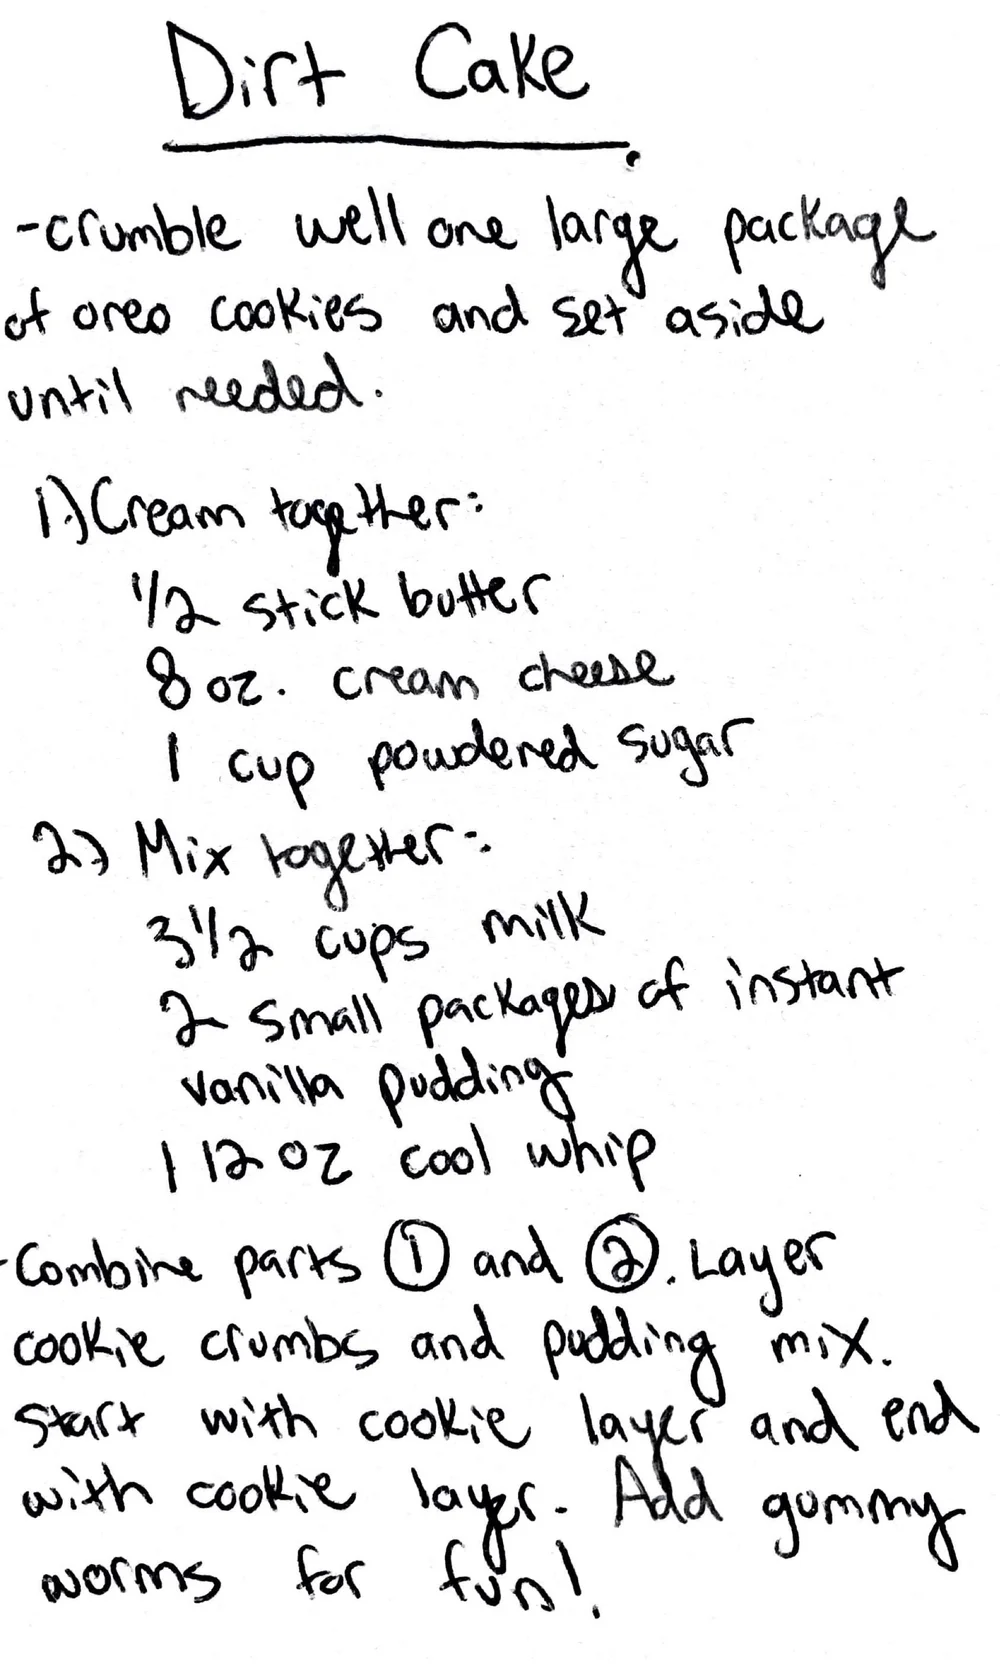 Dirt Cake
-crumble well one large package
of oreo cookies and set aside
until needed.
1.) Cream together:
1/2 stick butter
8 oz. cream cheese
1 cup powdered sugar
2.) Mix together:
3 1/2 cups milk
2 small packages of instant
vanilla pudding
1 12 oz cool whip
-Combine parts ① and ②. Layer
cookie crumbs and pudding mix.
Start with cookie layer and end
with cookie layer. Add gummy
worms for fun!